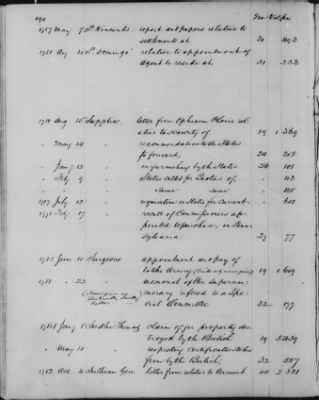 490
No Vol Pa
1787 May 7 St. Vincents report and papers relative to
settlements at 20 493
1781 Aug 10 St. Domingo relative to appointment of
Agent to reside at 20 233
Aug 15 Supplies letter from Ephraim Blaine rel
ative to scarcity of 19 1 369
" May 14 recommendation to the States
to forward, 24 203
" Jany 15 on furnishing by the States 26 101
" Feby 9 States calls for Quotas of, 113
" Same Same 125
July 12 requisition on States for Current 601
Feby 17 recall of Commissioners ap
pointed to purchase, in Penn
sylvania 29 77
Jan 10 Surgeons appointment and pay of
to the Army 19 1 649
" 22 memorial of the Supernu
merary referred to a Spe
cial Committee 32 177
Jany 8 Sadler Thomas claim of for property des
troyed by the British 19 5 439
" May 10 respecting certificates taken
from by the British, 32 557
1782 Oct 4 Sullivan Genl letter from relative to Vermont 20 2 381